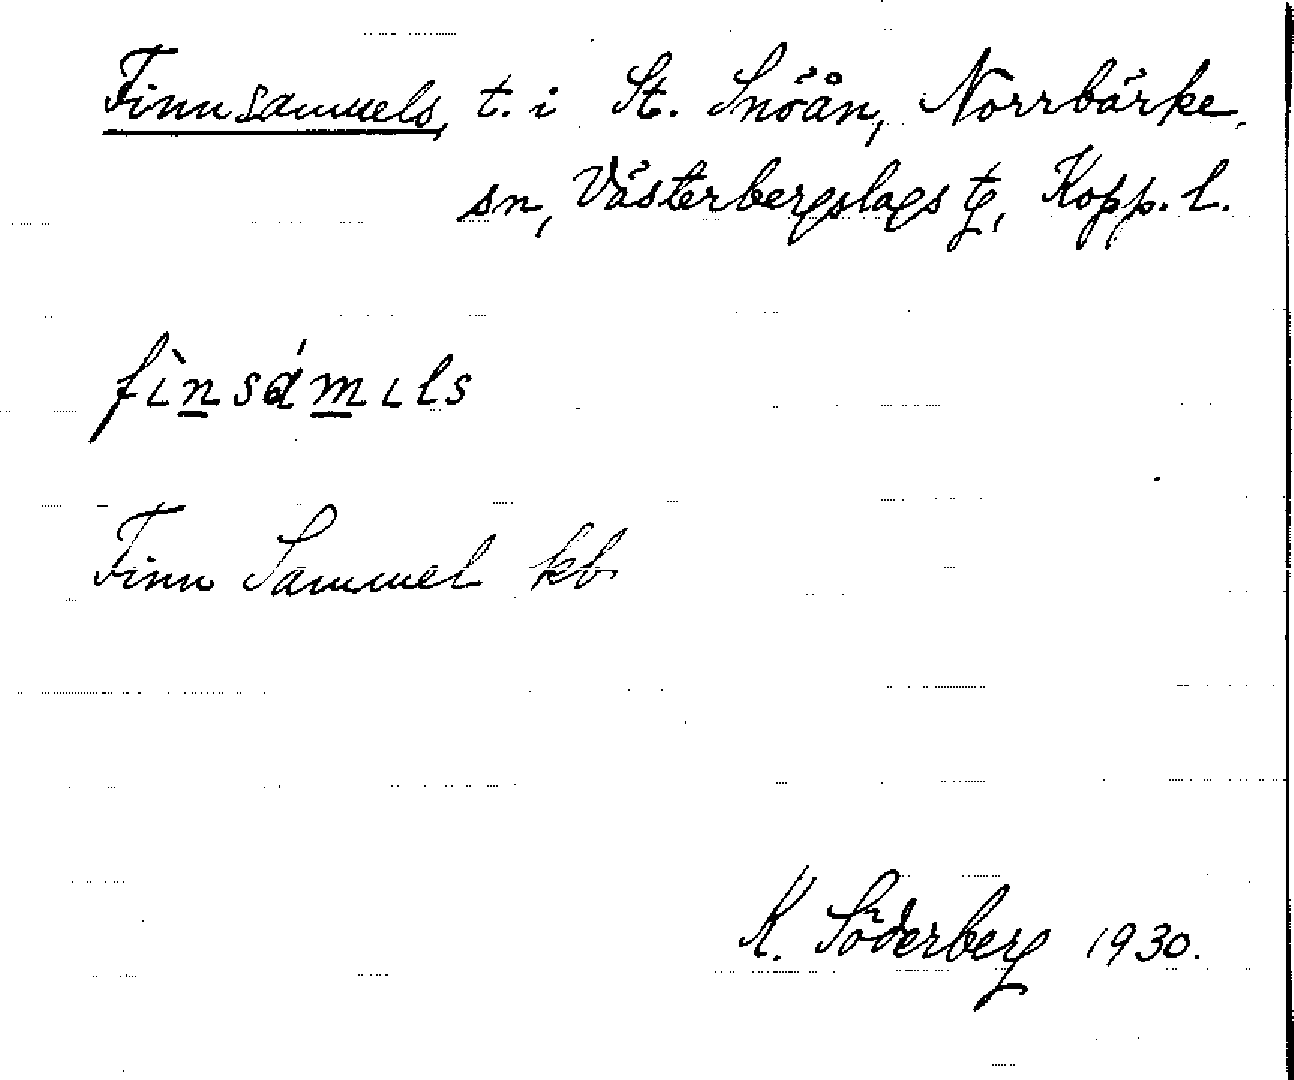 Finnsamuels, t. i St. Snöån, Norrbärke
sn, Västerbergslags tg, Kopp. l.
fìnsámıls
Finn Samuel kb
K. Söderberg 1930.